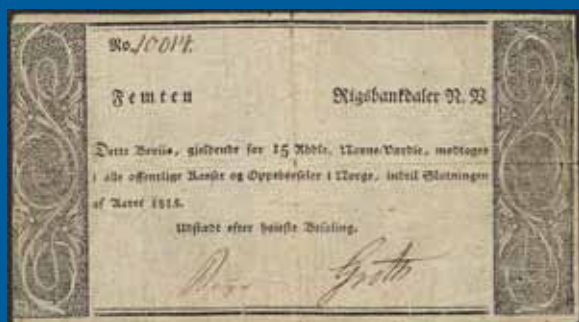 No. 10014.
Femten Rigsbankdaler N. V.
Dette Beviis, gjeldende for 15 Rbdlr. Navne-Værdie, modtages
i alle offentlige Kasser og Oppebørseler i Norge, indtil Slutningen
af Aaret 1815.
Udstædt efter høieste Befaling.
Groth